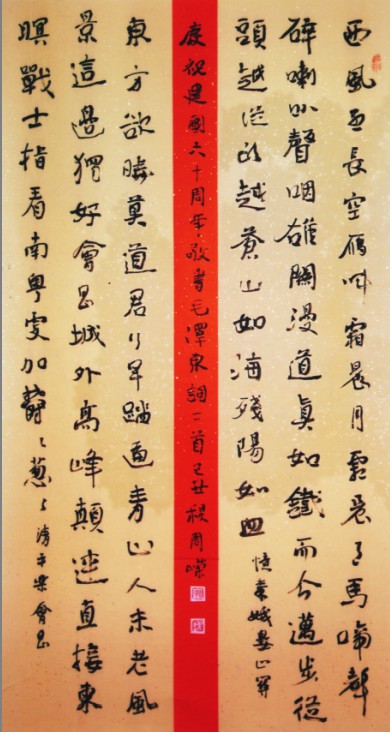 西風烈長空雁叫霜晨月霜晨月馬啼聲
碎喇叭聲咽雄關漫道真如鐵而今邁步從
頭越從頭越蒼山如海殘陽如血 憶秦娥婁山關
慶祝建國六十周年敬書毛澤東詞二首己丑楊周
東方欲曉莫道君行早踏遍青山人未老風
景這邊獨好會昌城外高峰顛連直接東
暝戰士指看南粵更加鬱々葱々 清平樂會昌